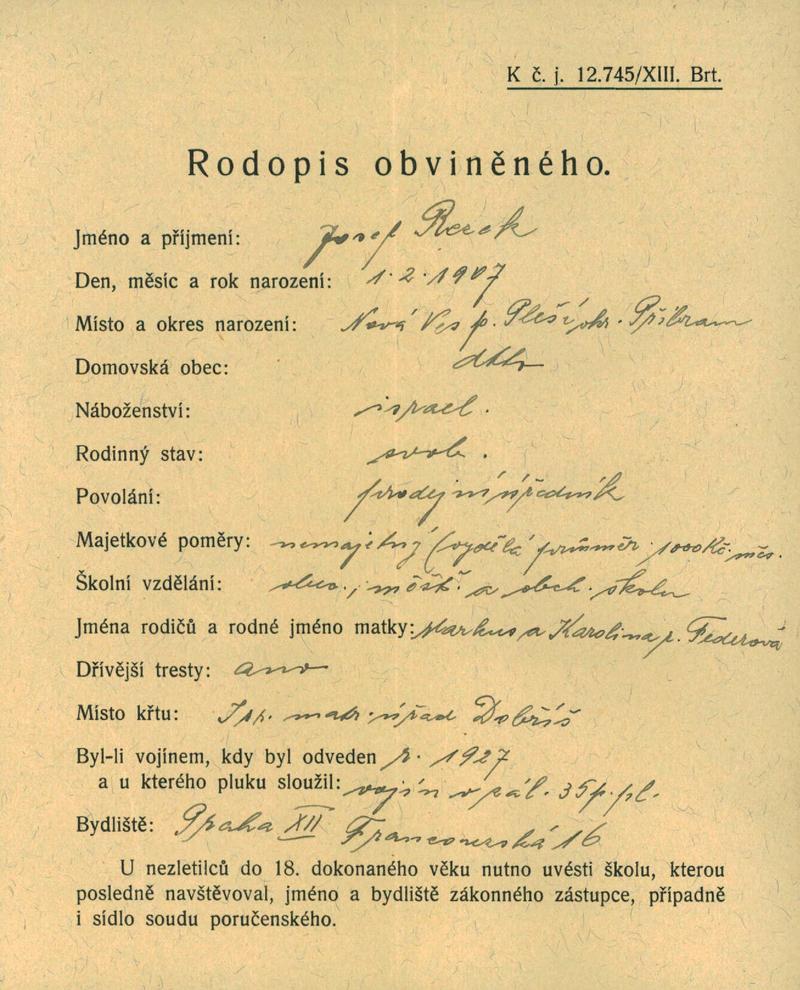 K č. j. 12.745/XIII. Brt.
Rodopis obviněného.
Jméno a příjmení: Josef
Den, měsíc a rok narození: 1. 2. 1907
Místo a okres narození: Nová Ves p. Pleší okr. Příbram
Domovská obec: dtto
Náboženství: israel.
Rodinný stav: svob.
Povolání: prodejní úředník
Majetkové poměry: nemajetný (vydělá průměr. 1000 Kč měs.
Školní vzdělání: obec., měšť. a obch. školu
Jména rodičů a rodné jméno matky: Markus a Karolina r. Federová
Dřívější tresty: ano
Místo křtu: Isr. matr. úřad Dobříš
Byl-li vojínem, kdy byl odveden r. 1927
a u kterého pluku sloužil: vojín v zál. 35 p. pl.
Bydliště: Praha XII Francouzská 16
U nezletilců do 18. dokonaného věku nutno uvésti školu, kterou
posledně navštěvoval, jméno a bydliště zákonného zástupce, případně
i sídlo soudu poručenského.